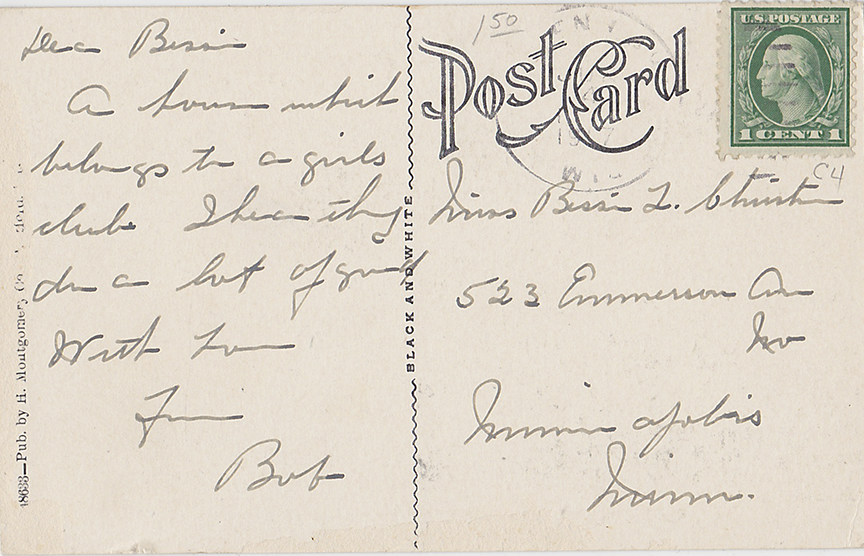 Dear Bessie
A house which
belongs to a girls
club. I hear they
do a lot of good
With Love
From
Bob
48633—Pub. by H. Montgomery Co.
BLACK AND WHITE
1 50
Post Card
WIS
U.S. POSTAGE
1 CENT 1
C4
Miss Bessie L.
523 Emmerson Av
No
Minneapolis
Minn.